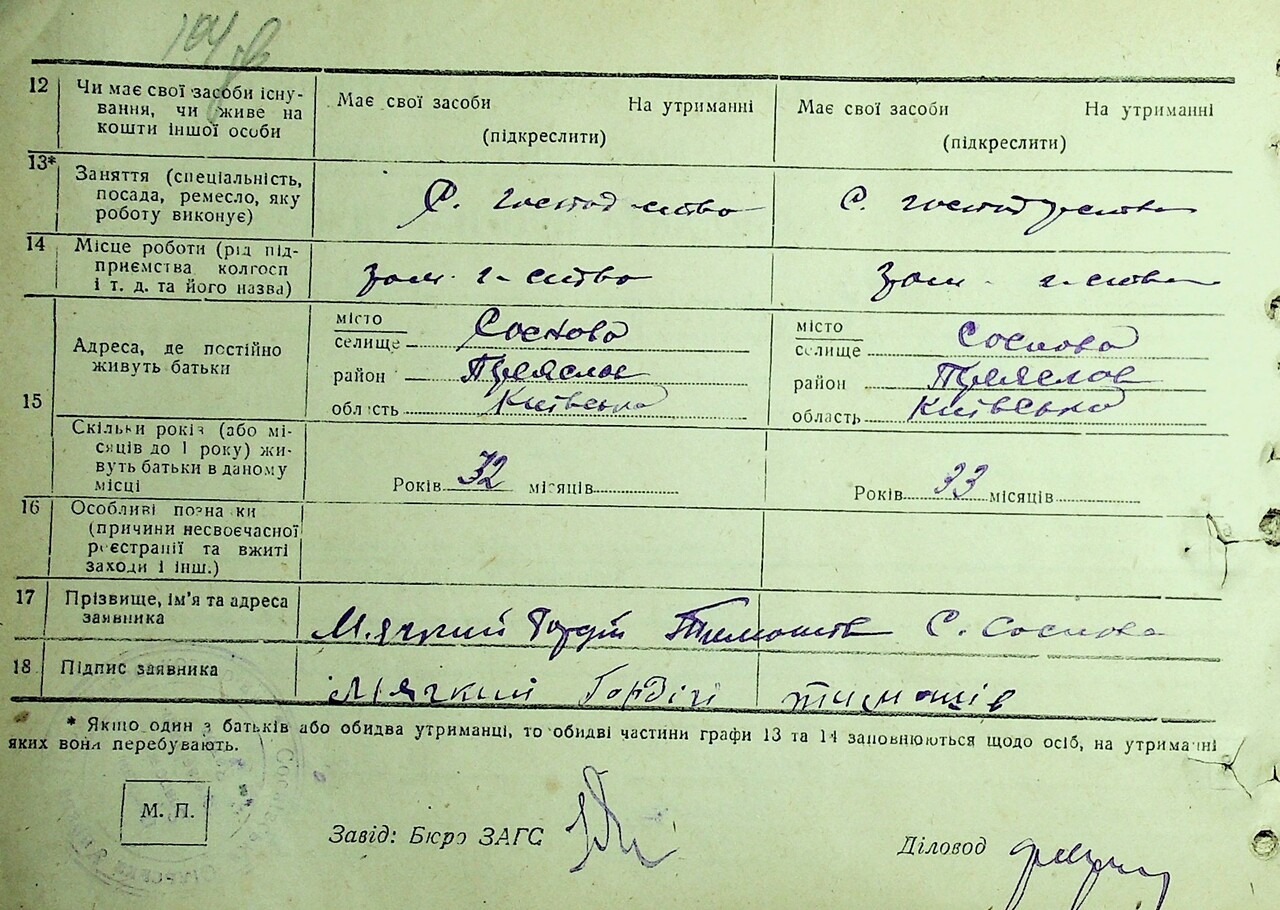 12 Чи має свої засоби існу-
вання, чи живе на
кошти іншої особи
Має свої засоби На утриманні
(підкреслити)
Має свої засоби На утриманні
(підкреслити)
13* Заняття (спеціальність,
посада, ремесло, яку
роботу виконує)
С. господ-ство
С. господарство
14 Місце роботи (рід під-
приємства колгосп
і т. д. та його назва)
г-ство
г-ство
15 Адреса, де постійно
живуть батьки
місто
селище Соснова
район Переяслов
область Київська
місто
селище Соснова
район Переяслов
область Київська
Скільки років (або мі-
сяців до 1 року) жи-
вуть батьки в даному
місці
Років 32 місяців
Років 33 місяців
16 Особливі познаки
(причини несвоєчасної
реєстрації та вжиті
заходи і інш.)
17 Прізвище, ім'я та адреса
заявника
Мягкий Гордій Тимошів С. Соснова
18 Підпис заявника
Мягкий Гордій тимошів
* Якщо один з батьків або обидва утриманці, то обидві частини графи 13 та 14 заповнюються щодо осіб, на утриманні
яких вони перебувають.
М. П.
Завід: Бюро ЗАГС
Діловод